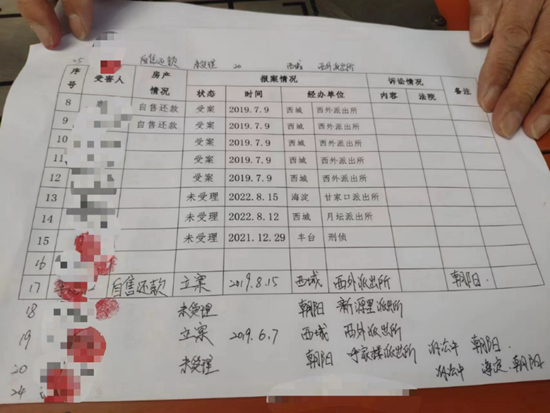 自售还款 未受理 20 西城 西外派出所
序号 受害人 房产情况 报案情况 诉讼情况 备注
状态 时间 经办单位 内容 法院
8 自售还款 受案 2019.7.9 西城 西外派出所
9 自售还款 受案 2019.7.9 西城 西外派出所
10 受案 2019.7.9 西城 西外派出所
11 受案 2019.7.9 西城 西外派出所
12 受案 2019.7.9 西城 西外派出所
13 未受理 2022.8.15 海淀 甘家口派出所
14 未受理 2022.8.12 西城 月坛派出所
15 未受理 2021.12.29 丰台 刑侦
16
17 自售还款 立案 2019.8.15 西城 西外派出所 朝阳
18 未受理 朝阳 新源里派出所
19 立案 2019.6.7 西城 西外派出所
20 未受理 朝阳 派出所 朝阳
24 海淀 朝阳